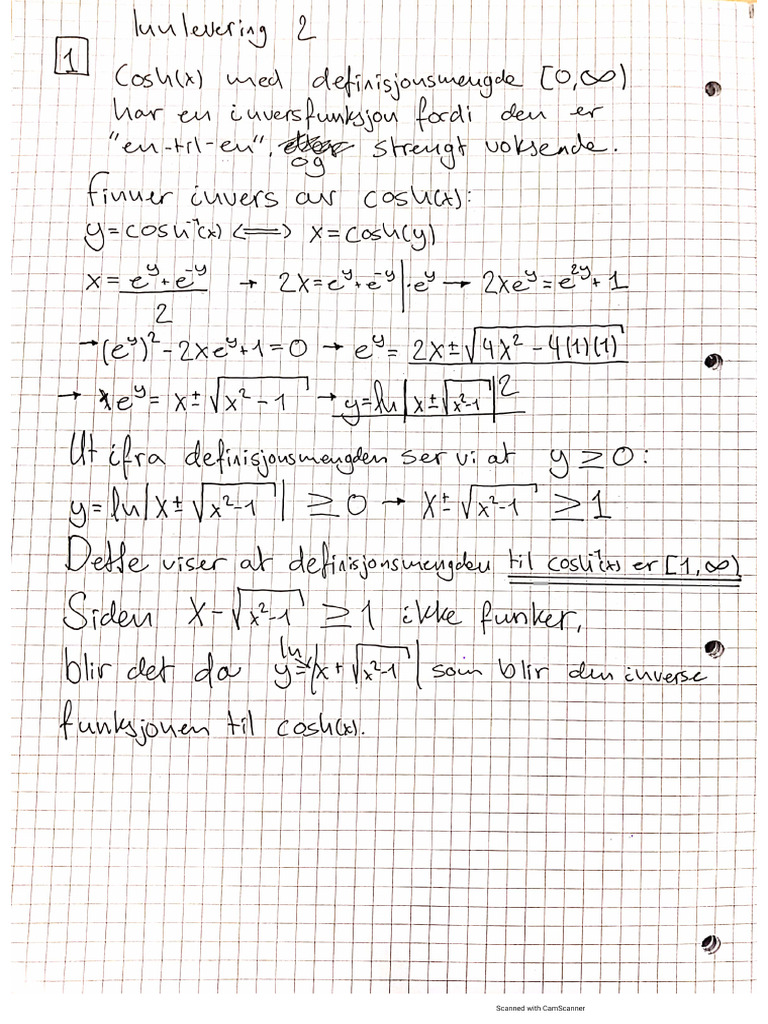 Innlevering 2
1
Cosh(x) med definisjonsmengde [0,∞)
har en inversfunksjon fordi den er
"en-til-en", og strengt voksende.
Finner invers av cosh(x):
y=cosh⁻¹(x) ⟺ x=cosh(y)
x = (e^y+e^-y)/2 → 2x=e^y+e^-y |·e^y → 2xe^y=e^2y+1
→(e^y)²-2xe^y+1=0 → e^y= (2x±√(4x²-4(1)(1)))/2
→ e^y= x±√(x²-1) → y=ln|x±√(x²-1)|
Ut ifra definisjonsmengden ser vi at y≥0:
y=ln|x±√(x²-1)| ≥0 → x±√(x²-1) ≥1
Dette viser at definisjonsmengden til cosh⁻¹(x) er [1,∞)
Siden x-√(x²-1) ≥1 ikke funker,
blir det da y=ln|x+√(x²-1)| som blir den inverse
funksjonen til cosh(x).
Scanned with CamScanner